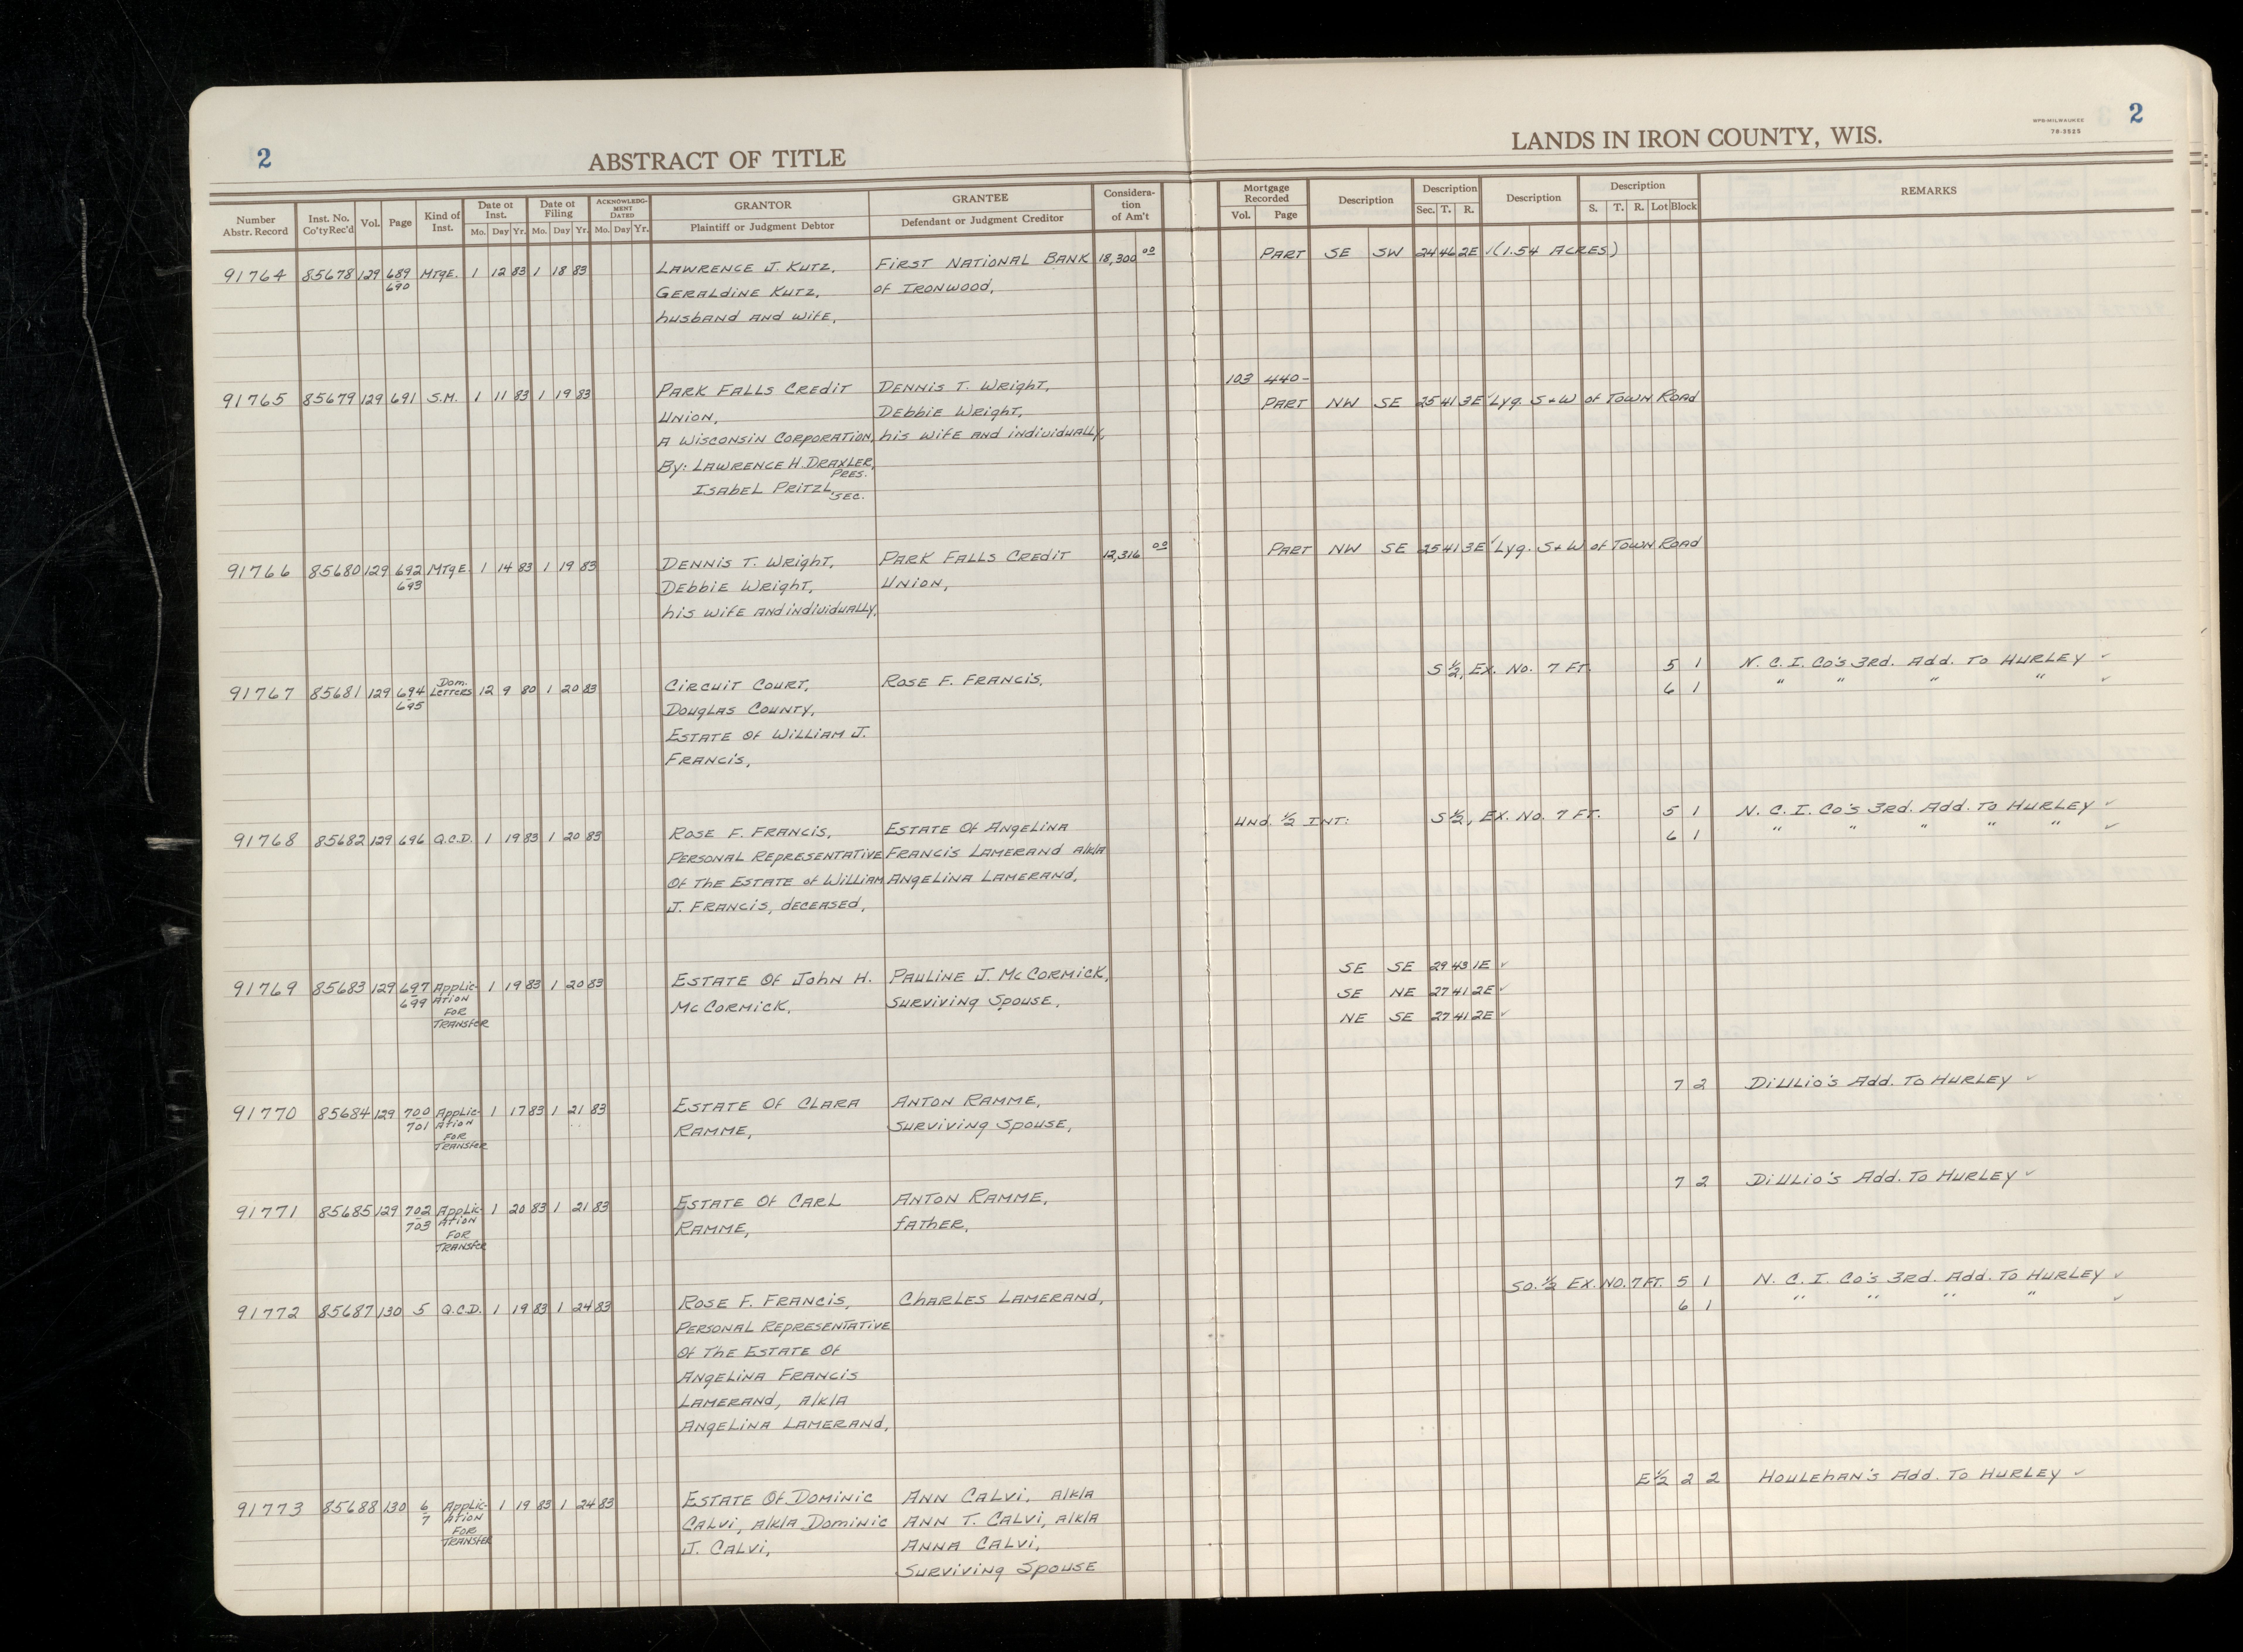 2
ABSTRACT OF TITLE
LANDS IN IRON COUNTY, WIS.
WPS-MILWAUKEE
78-3525
2
Number Abstr. Record
Inst. No. Co'ty Rec'd
Vol.
Page
Kind of Inst.
Date of Inst.
Mo. Day Yr.
Date of Filing
Mo. Day Yr.
ACKNOWLEDGMENT DATED
Mo. Day Yr.
GRANTOR
Plaintiff or Judgment Debtor
GRANTEE
Defendant or Judgment Creditor
Consideration of Am't
Mortgage Recorded
Vol. Page
Description
Description
Sec. T. R.
Description
Description
S. T. R. Lot Block
REMARKS
91764 85678 129 689 MTgE. 1 12 83 1 18 83 LAWRENCE J. KUTZ, FIRST NATIONAL BANK 18,300 00 PART SE SW 24 46 2E ✓(1.54 ACRES)
690 GERALDINE KUTZ, OF IRONWOOD,
husband and wife,
103 440-
91765 85679 129 691 S.M. 1 11 83 1 19 83 PARK FALLS CREDIT DENNIS T. WRIGHT, PART NW SE 25 41 3E ✓Lyg. S+W of TOWN ROAD
UNION, DEBBIE WRIGHT,
A WISCONSIN CORPORATION, his wife and individually,
By: LAWRENCE H. DRAXLER, PRES.
ISABEL PRITZL, SEC.
91766 85680 129 692 MTgE. 1 14 83 1 19 83 DENNIS T. WRIGHT, PARK FALLS CREDIT 12,316 00 PART NW SE 25 41 3E ✓Lyg. S+W of TOWN ROAD
693 DEBBIE WRIGHT, UNION,
his wife and individually,
91767 85681 129 694 Dom. LETTERS 12 9 80 1 20 83 CIRCUIT COURT, ROSE F. FRANCIS, S 1/2, EX. NO. 7 FT. 5 1 N. C. I. CO'S 3RD. ADD. TO HURLEY ✓
695 DOUGLAS COUNTY, 6 1 " " " " ✓
ESTATE OF WILLIAM J.
FRANCIS,
91768 85682 129 696 Q.C.D. 1 19 83 1 20 83 ROSE F. FRANCIS, ESTATE OF ANGELINA Und. 1/2 INT: S 1/2, EX. NO. 7 FT. 5 1 N. C. I. CO'S 3RD. ADD. TO HURLEY ✓
PERSONAL REPRESENTATIVE FRANCIS LAMERAND a/k/a 6 1 " " " " " ✓
OF THE ESTATE of WILLIAM ANGELINA LAMERAND,
J. FRANCIS, deceased,
91769 85683 129 697 APPLIC- 1 19 83 1 20 83 ESTATE OF JOHN H. PAULINE J. McCORMICK, SE SE 29 43 1E ✓
699 ATION McCORMICK, SURVIVING SPOUSE, SE NE 27 41 2E ✓
FOR NE SE 27 41 2E ✓
TRANSFER
91770 85684 129 700 APPLIC- 1 17 83 1 21 83 ESTATE OF CLARA ANTON RAMME, 7 2 DiULio's ADD. TO HURLEY ✓
701 ATION RAMME, SURVIVING SPOUSE,
FOR
TRANSFER
91771 85685 129 702 APPLIC- 1 20 83 1 21 83 ESTATE OF CARL ANTON RAMME, 7 2 DiULio's ADD. TO HURLEY ✓
703 ATION RAMME, FATHER,
FOR
TRANSFER
91772 85687 130 5 Q.C.D. 1 19 83 1 24 83 ROSE F. FRANCIS, CHARLES LAMERAND, SO. 1/2 EX. NO. 7 FT. 5 1 N. C. I. CO'S 3RD. ADD. TO HURLEY ✓
PERSONAL REPRESENTATIVE 6 1 " " " " ✓
OF THE ESTATE OF
ANGELINA FRANCIS
LAMERAND, a/k/a
ANGELINA LAMERAND,
91773 85688 130 6 APPLIC- 1 19 83 1 24 83 ESTATE OF DOMINIC ANN CALVI, a/k/a E 1/2 2 2 HOULEHAN'S ADD. TO HURLEY ✓
7 ATION CALVI, a/k/a DOMINIC ANN T. CALVI, a/k/a
FOR J. CALVI, ANNA CALVI,
TRANSFER SURVIVING SPOUSE